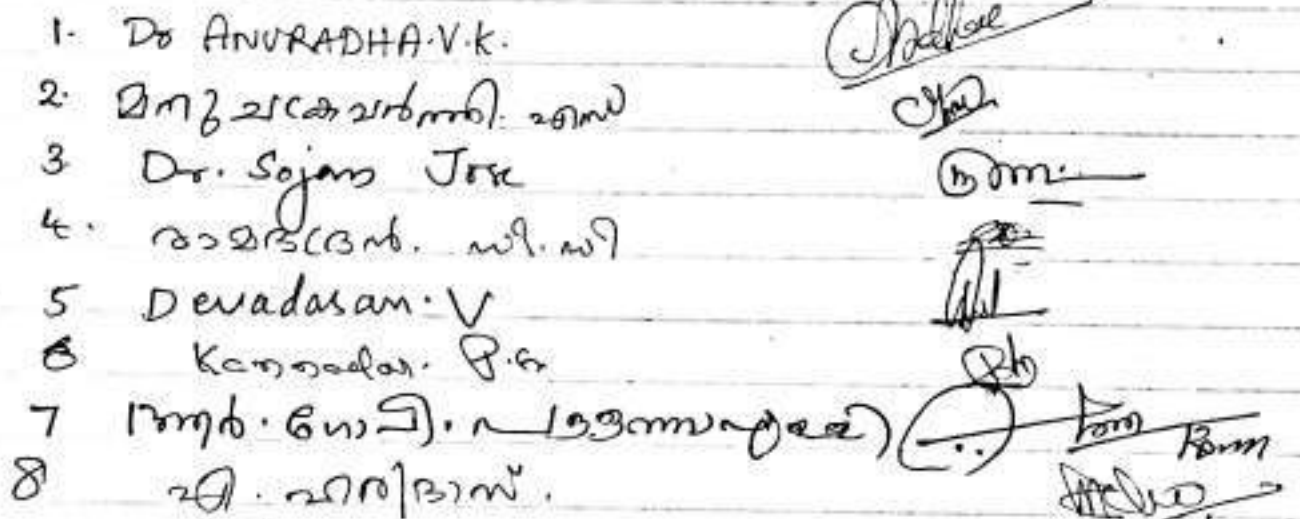 1. Dr ANURADHA.V.K.
2. മനു ചക്രവർത്തി. എസ്
3 Dr. Sojan Jose
4. രാമഭദ്രൻ. സി.സി
5 Devadasan. V
6 Kannadas. P.
7 ആർ. ഗോപി.
8 എ. ഹരിദാസ്.